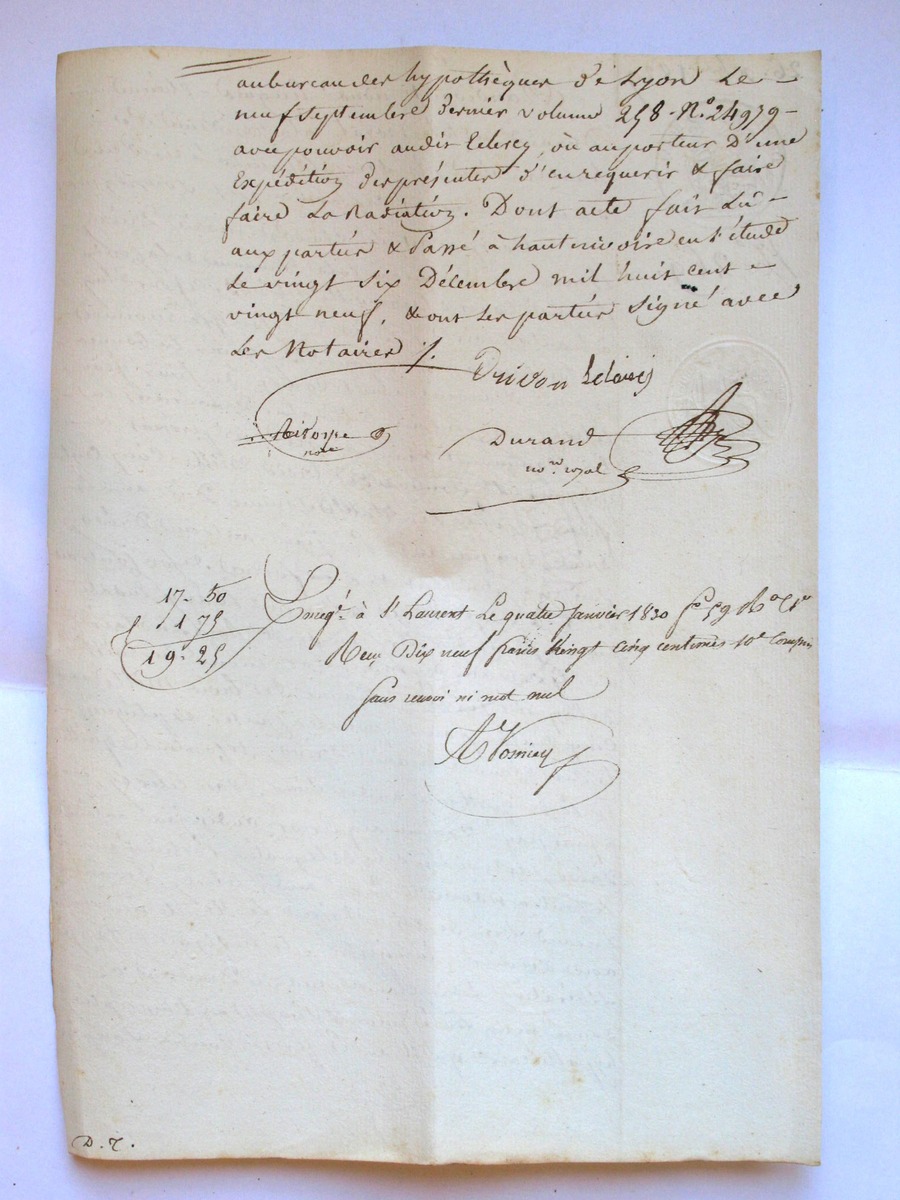 au bureau des hypothèques de Lyon Le -
neuf Septembre dernier volume 258. N.º 24979 -
avec pouvoir audit Leclerc, où au porteur d'une
Expédition des présentes d'en requerir & faire
faire La Radiation. Dont acte fait Lû -
aux parties & Passé à hauterivoire en l'étude
Le vingt Six Décembre mil huit cent -
vingt neuf, & ont Les parties Signé avec
Les Notaires /.
Drivon
Durand
no.re royal
17 - 50
1 75
19 - 25
Enreg.é à S.t Laurent Le quatre Janvier 1830 f.o 59 R.o C.
Reçu Dix neuf francs Vingt cinq centimes 10.e compris
Sans renvoi ni mot nul
D. T.